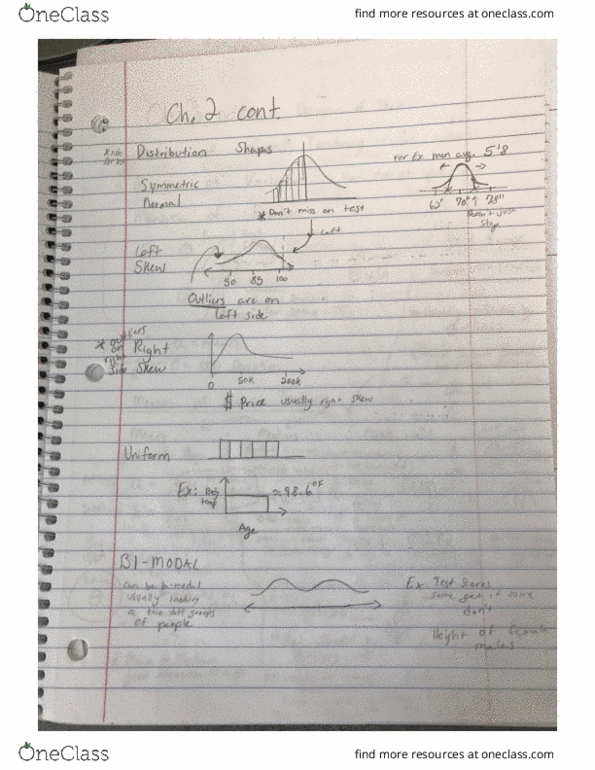 OneClass
find more resources at oneclass.com
Ch. 2 cont.
Distribution Shapes
for Ex men avg. 5'8
Symmetric
Normal
* Don't miss on test
70" 78"
Doesn't just
stop
Left
Skew
Left
50 85 100
Outliers are on
left side
* outliers
on
right
side
Right
Skew
0 50k 200k
$ Price usually right skew
Uniform
Ex: Body
temp
≈98.6°F
Age
BI-MODAL
can be bi-modal
usually looking
@ two diff groups
of people
Ex Test Scores
some get it some
don't
Height of female
males
OneClass
find more resources at oneclass.com